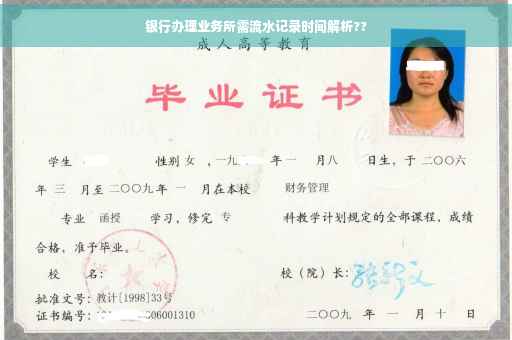 银行办理业务所需流水记录时间解析??
成人高等教育
毕业证书
学生 性别 女 ，一九 年 一 月 八 日生，于 二〇〇六
年 三 月至 二〇〇九 年 一 月在本校 财务管理
专业 函授 学习，修完 专 科教学计划规定的全部课程，成绩
合格，准予毕业。
校 名： 校（院）长：
批准文号：教计[1998]33号
证书编号： 006001310 二〇〇九 年 一 月 十 日